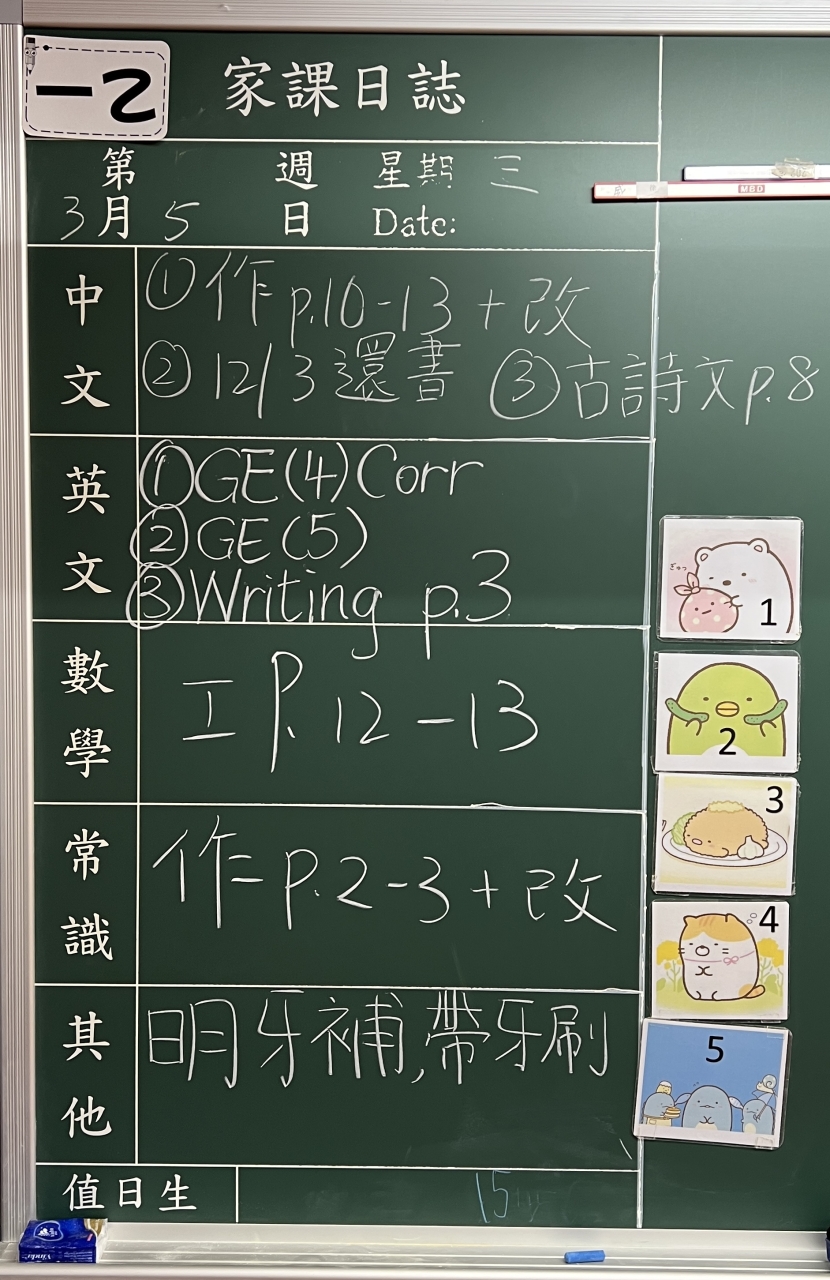 一乙
家課日誌
第 週 星期 三
3月 5 日 Date:
中文
①作 p.10-13 + 改
②12/3還書 ③古詩文p.8
英文
①GE(4)Corr
②GE(5)
③Writing p.3
數學
工 P.12-13
常識
作 p.2-3 + 改
其他
明牙補,帶牙刷
值日生
15
MBD
ぎゅっ
1
2
3
4
5
Vinda